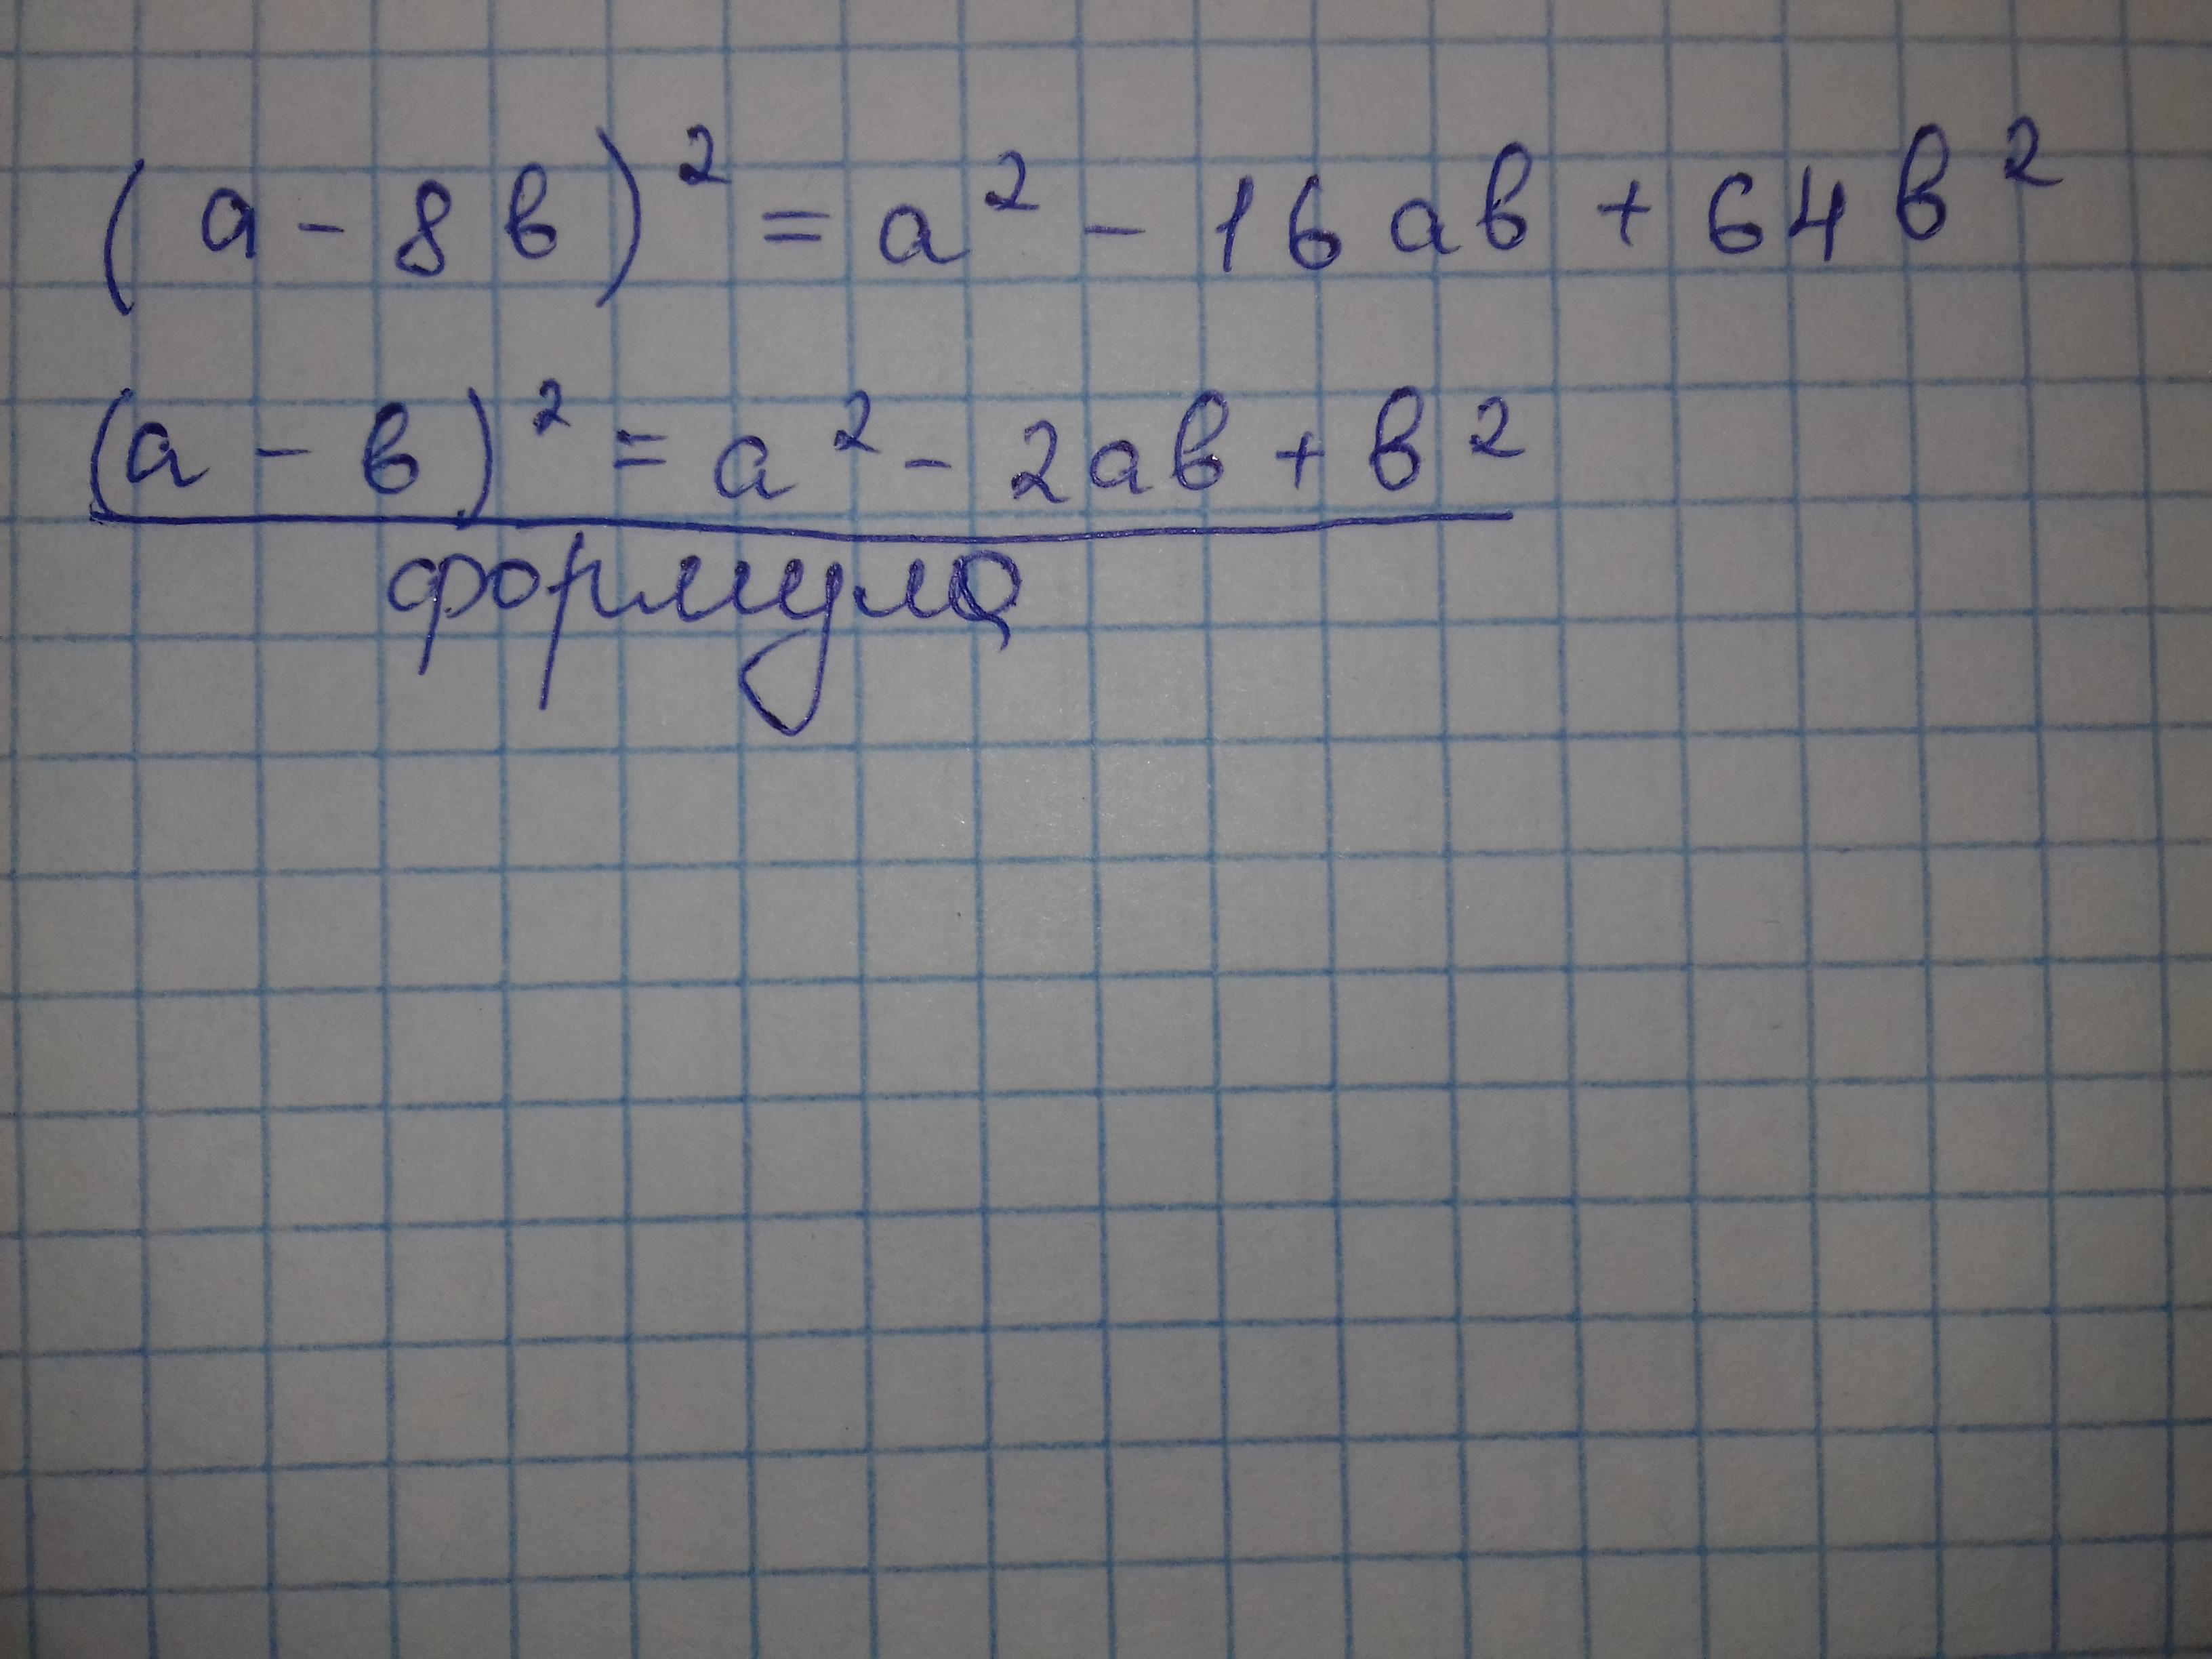 (а - 8в)² = а² - 16ав + 64в²
(а - в)² = а² - 2ав + в²
формула